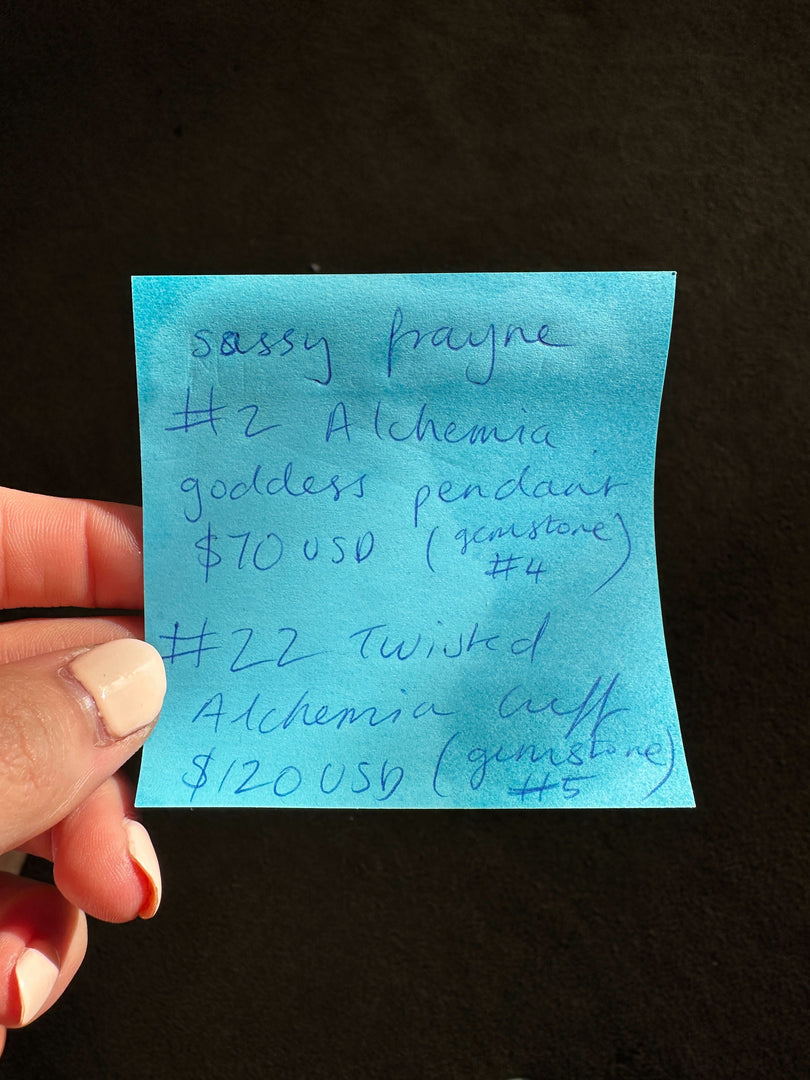 sassy frayne
#2 Alchemia
goddess pendant
$70 USD (gemstone #4)
#22 Twisted
Alchemia Cuff
$120 USD (gemstone #5)